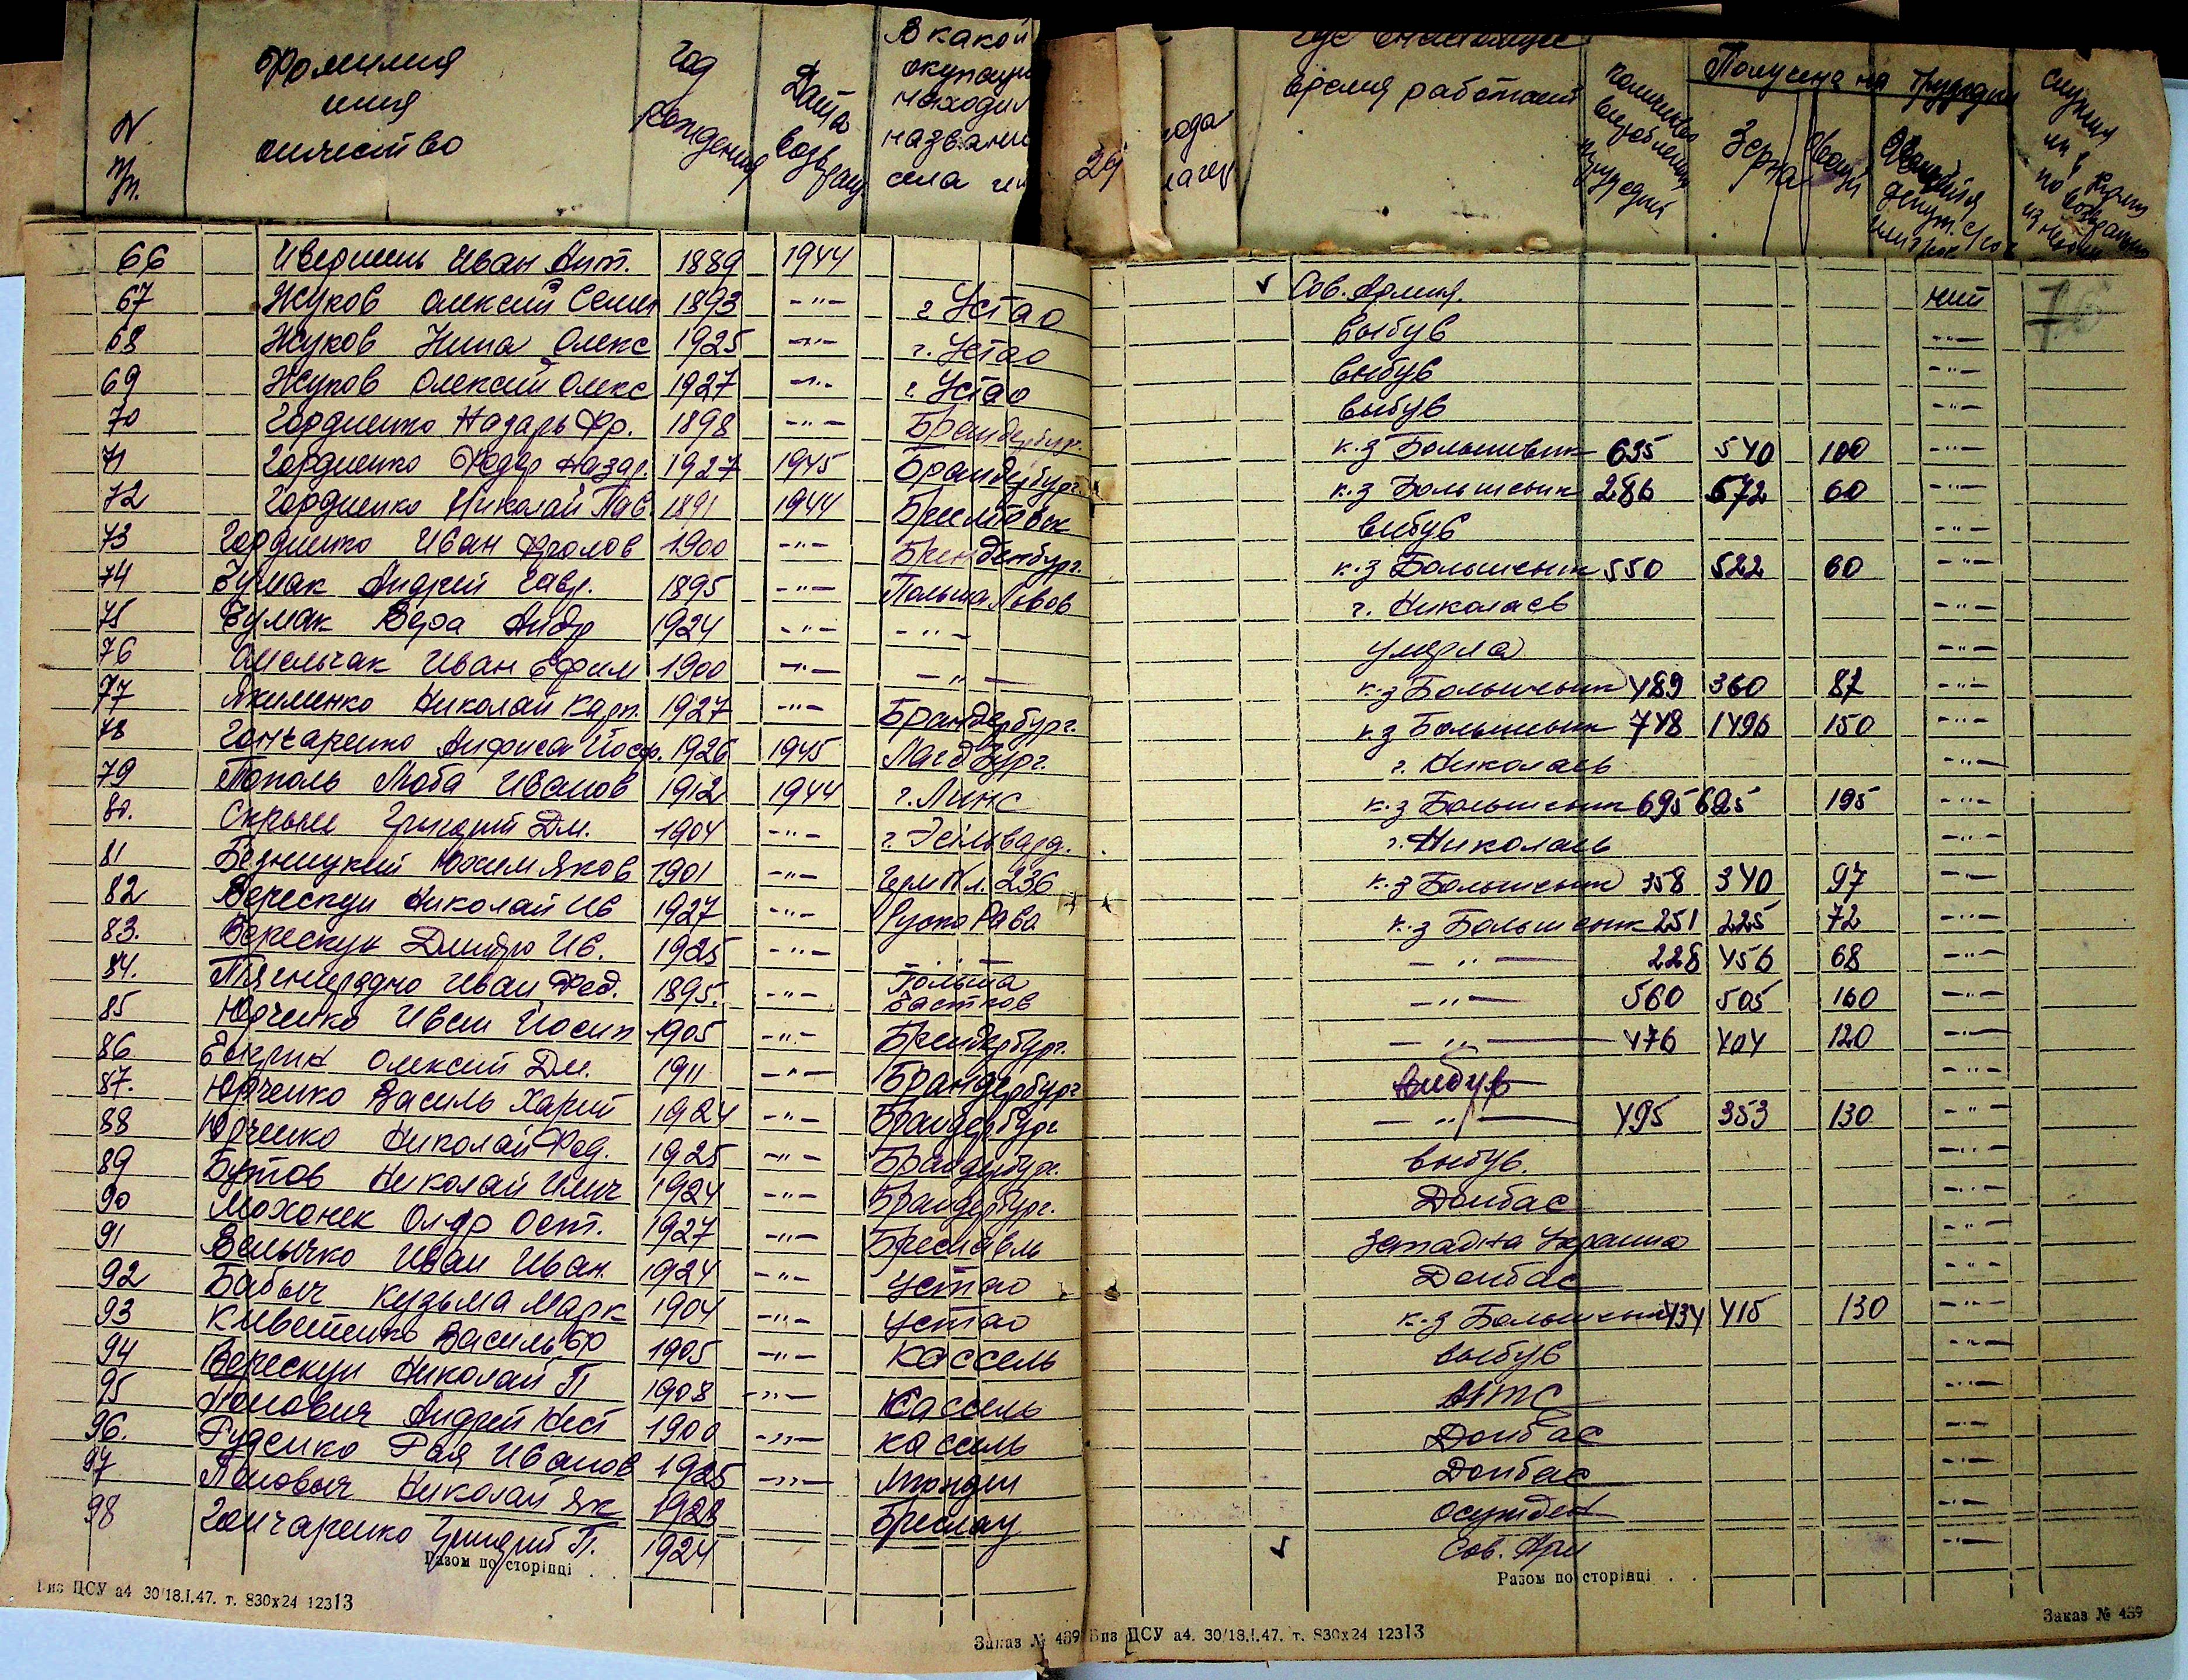 N п/п. Фамилия имя отчество Год рождения Дата возвращ. В какой окупации находил названи села
24 года
время работает количество трудодней Получено на трудодни Зерна
66 Иван Ант. 1889 1944 Сов. Армия. нет 76
67 Жуков Олексий Семен 1893 -"- г. Устао выбув -"-
68 Жуков Нина Олекс 1925 -"- г. Устао выбув -"-
69 Жуков Олексий Олекс 1927 -"- г. Устао выбув -"-
70 Гордиенко Назарь Фр. 1898 -"- Брандербург. к.з Большевик 635 540 100 -"-
71 Гордиенко Федор Назар. 1927 1945 Брандербург. к.з Большевик 286 572 60 -"-
72 Гордиенко Николай Пав 1891 1944 выбув -"-
73 Гордиенко Иван Фролов 1900 -"- Бренденбург. к.з Большевик 550 522 60 -"-
74 Чумак Андрей Гавр. 1895 -"- Польша Львов г. Николаев -"-
75 Чумак Вера Андр 1924 -"- -"- умерла -"-
76 Омельчак Иван Ефим 1900 -"- -"- к.з Большевик 489 360 87 -"-
77 Якименко Николай Карп. 1927 -"- Брандербург. к.з Большевик 748 1496 150 -"-
78 Гончаренко Анфиса Йосф. 1926 1945 Магдбург. г. Николаев -"-
79 Тополь Люба Иванов 1912 1944 г. Линс к.з Большевик 695 625 195 -"-
80. Григорий Дм. 1904 -"- г. Николаев -"-
81 Бедницкий Юхим Яков 1901 -"- 236 к.з Большевик 358 340 97 -"-
82 Верескун Николай Ив 1927 -"- Руско Рава к.з Большевик 251 225 72 -"-
83. Верескун Дмитро Ив. 1925 -"- -"- -"- 228 456 68 -"-
84. Иван Фед. 1895. -"- Польша -"- 560 505 160 -"-
85 Юрченко Иван Йосип 1905 -"- Брендербург. -"- 476 404 120 -"-
86 Олексий Дм. 1911 -"- Брандербург выбув -"-
87. Юрченко Василь Харит 1924 -"- Брандербург -"- 495 353 130 -"-
88 Юрченко Николай Фед. 1925 -"- Брандербург. выбув. -"-
89 Бутов Николай Илич 1924 -"- Брандербург. Донбас -"-
90 Мохонек Олдр Ост. 1927 -"- Бреславль Западна Украина -"-
91 Велычко Иван Иван. 1924 -"- Устао Донбас -"-
92 Бабыч Кузьма Марк 1904 -"- Устао к.з Большевик 434 415 130 -"-
93 Василь 1905 -"- Кассель выбув -"-
94 Верескун Николай П 1908 -"- Кассель МТС -"-
95 Андрей 1900 -"- Кассель Донбас -"-
96. Руденко Рая Иванов 1925 -"- Донбас -"-
97 Николай Як 1928 Бреслау осужден -"-
98 Гончаренко Григорий П. 1924 Сов. Арм -"-
Разом по сторінці . . Разом по сторінці . .
Виз ЦСУ а4 30/18.I.47. т. 830x24 12313 Заказ № 439
Виз ЦСУ а4. 30/18.I.47. т. 830x24 12313 Заказ № 439